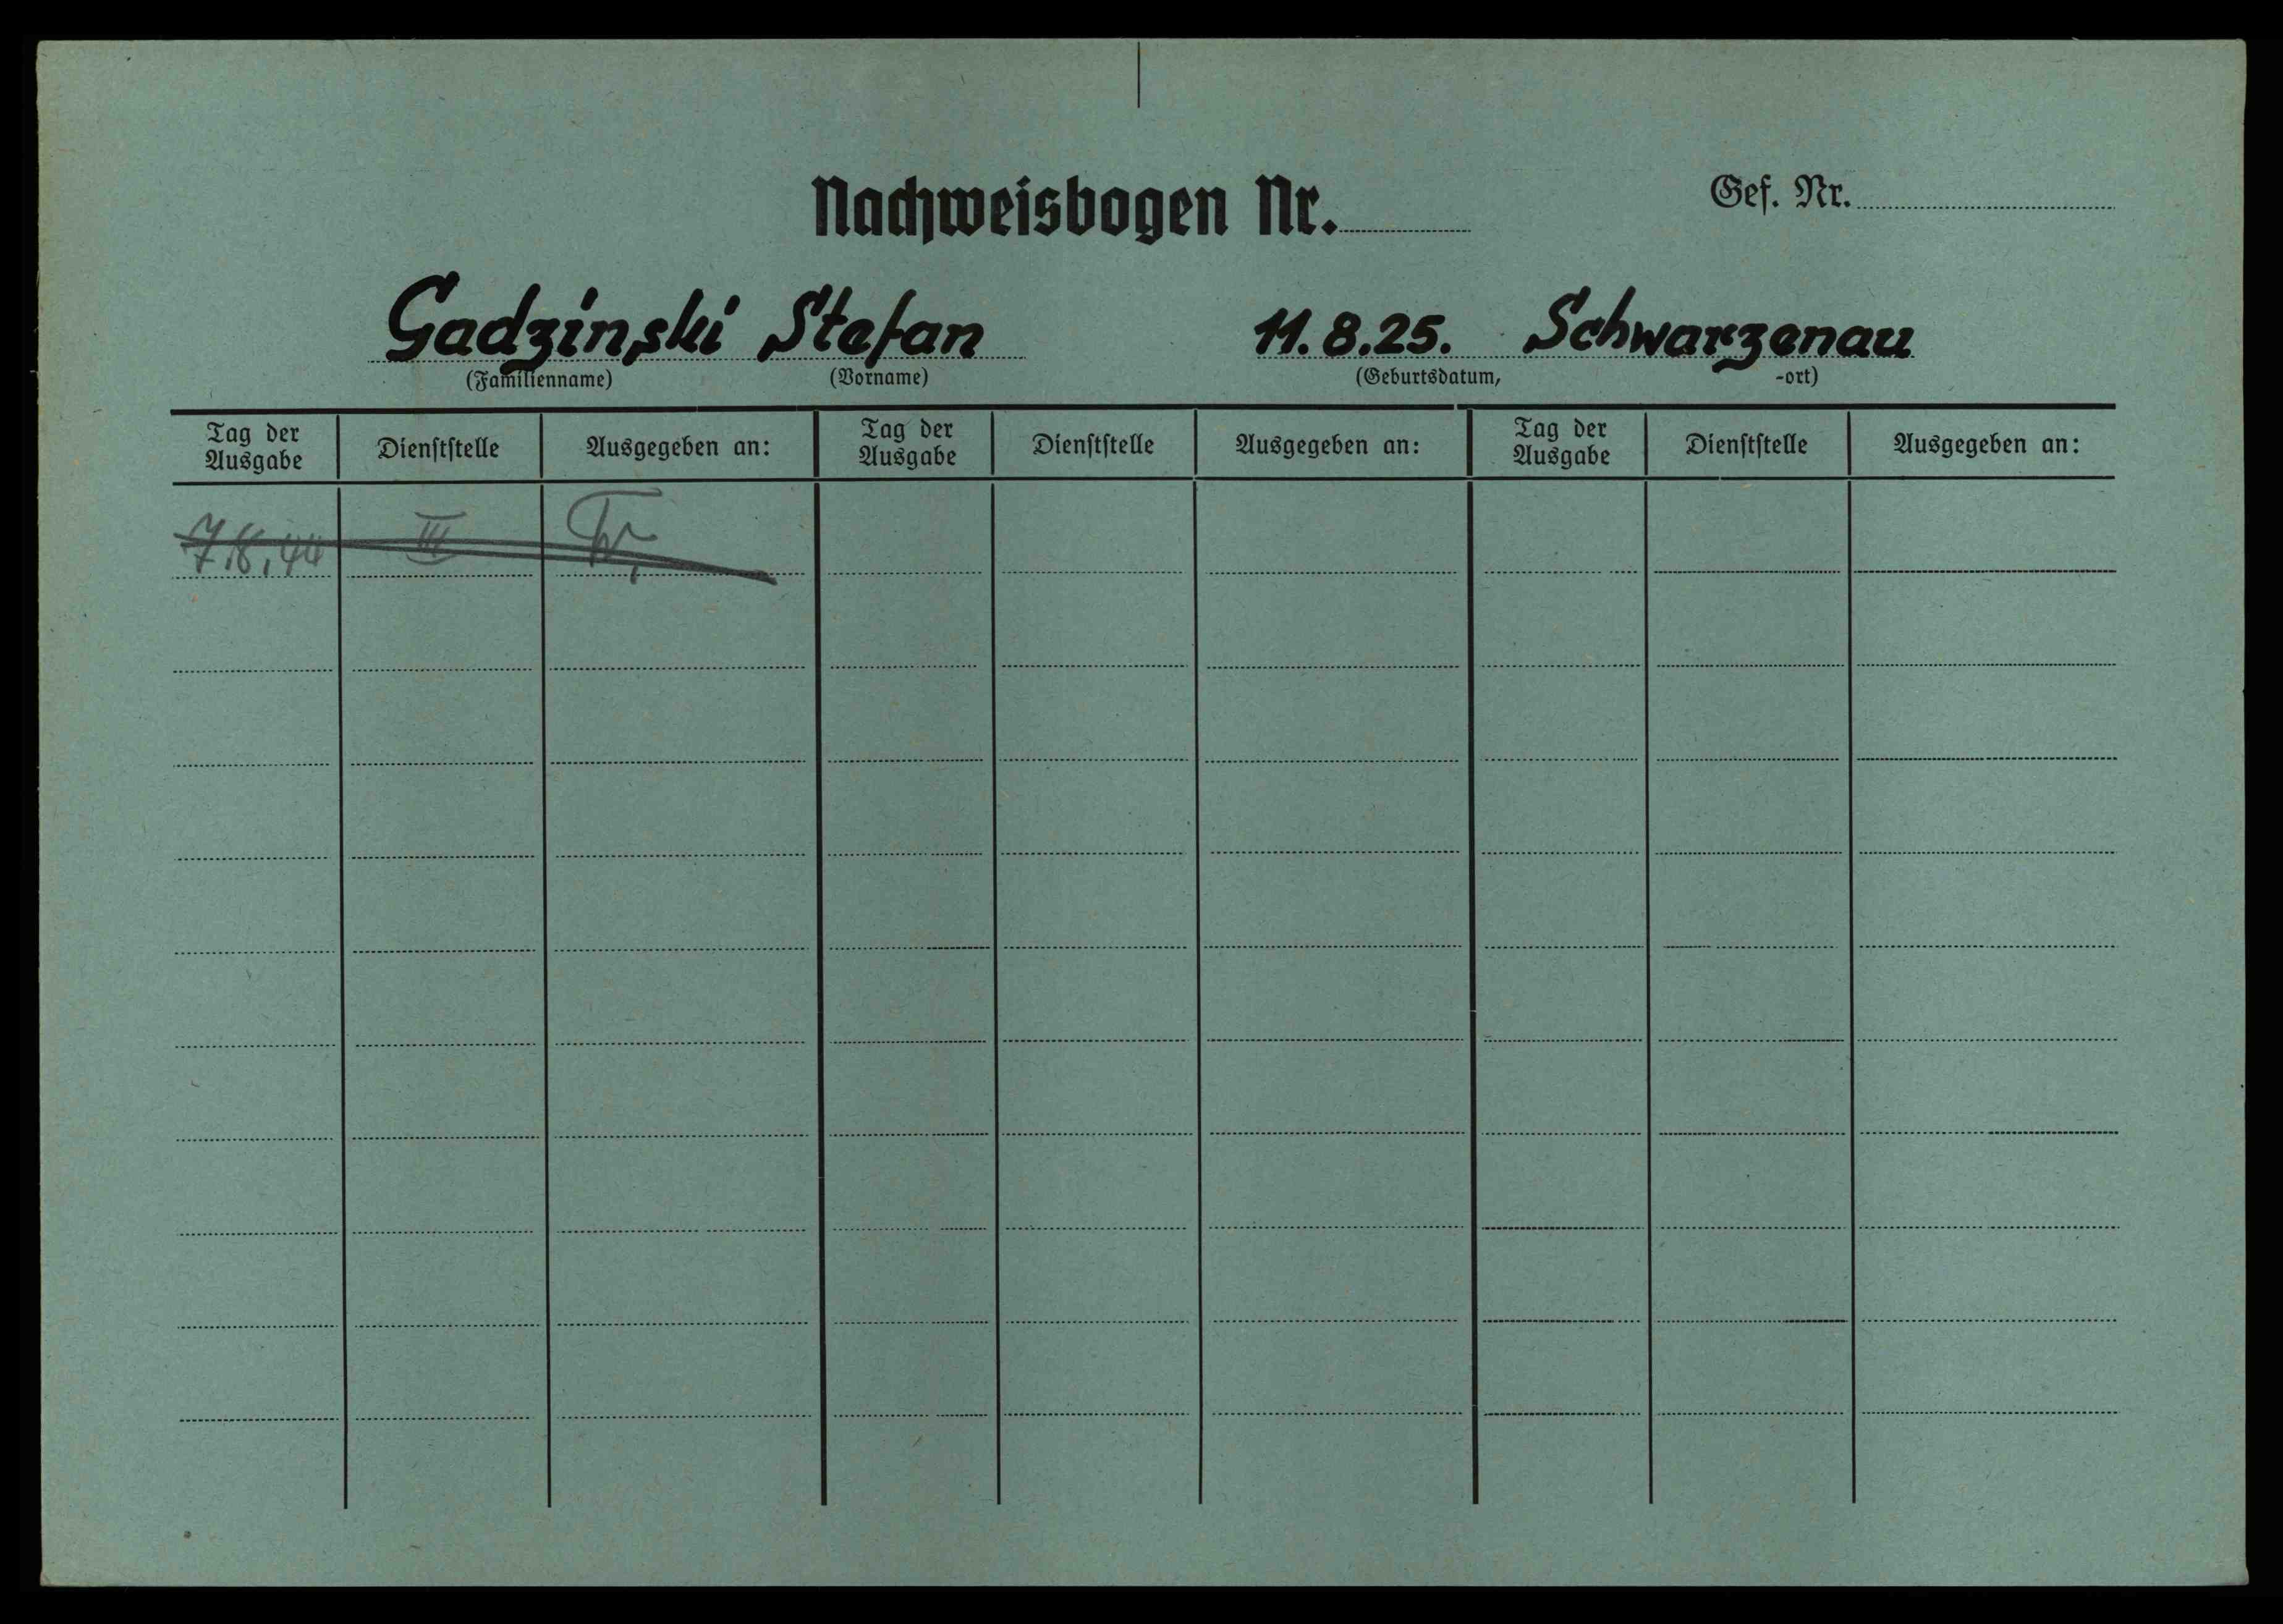 Nachweisbogen Nr.
Gef. Nr.
Gadzinski Stefan 11.8.25. Schwarzenau
(Familienname) (Vorname) (Geburtsdatum, -ort)
Tag der Ausgabe Dienststelle Ausgegeben an: Tag der Ausgabe Dienststelle Ausgegeben an: Tag der Ausgabe Dienststelle Ausgegeben an:
7.8.44 III